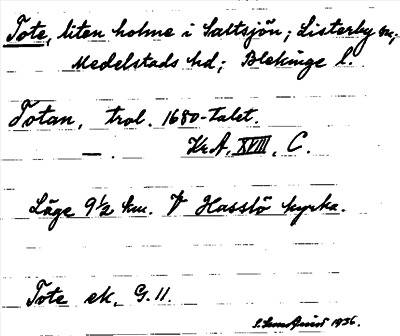 Tote, liten holme i Saltsjön; Listerby sn;
Medelstads hd; Blekinge l.
Totan, trol. 1680-talet.
— . Kr.A. XVIII, C.
Läge 9½ km. V Hasslö kyrka.
Tote ek. G. 11.
1936.